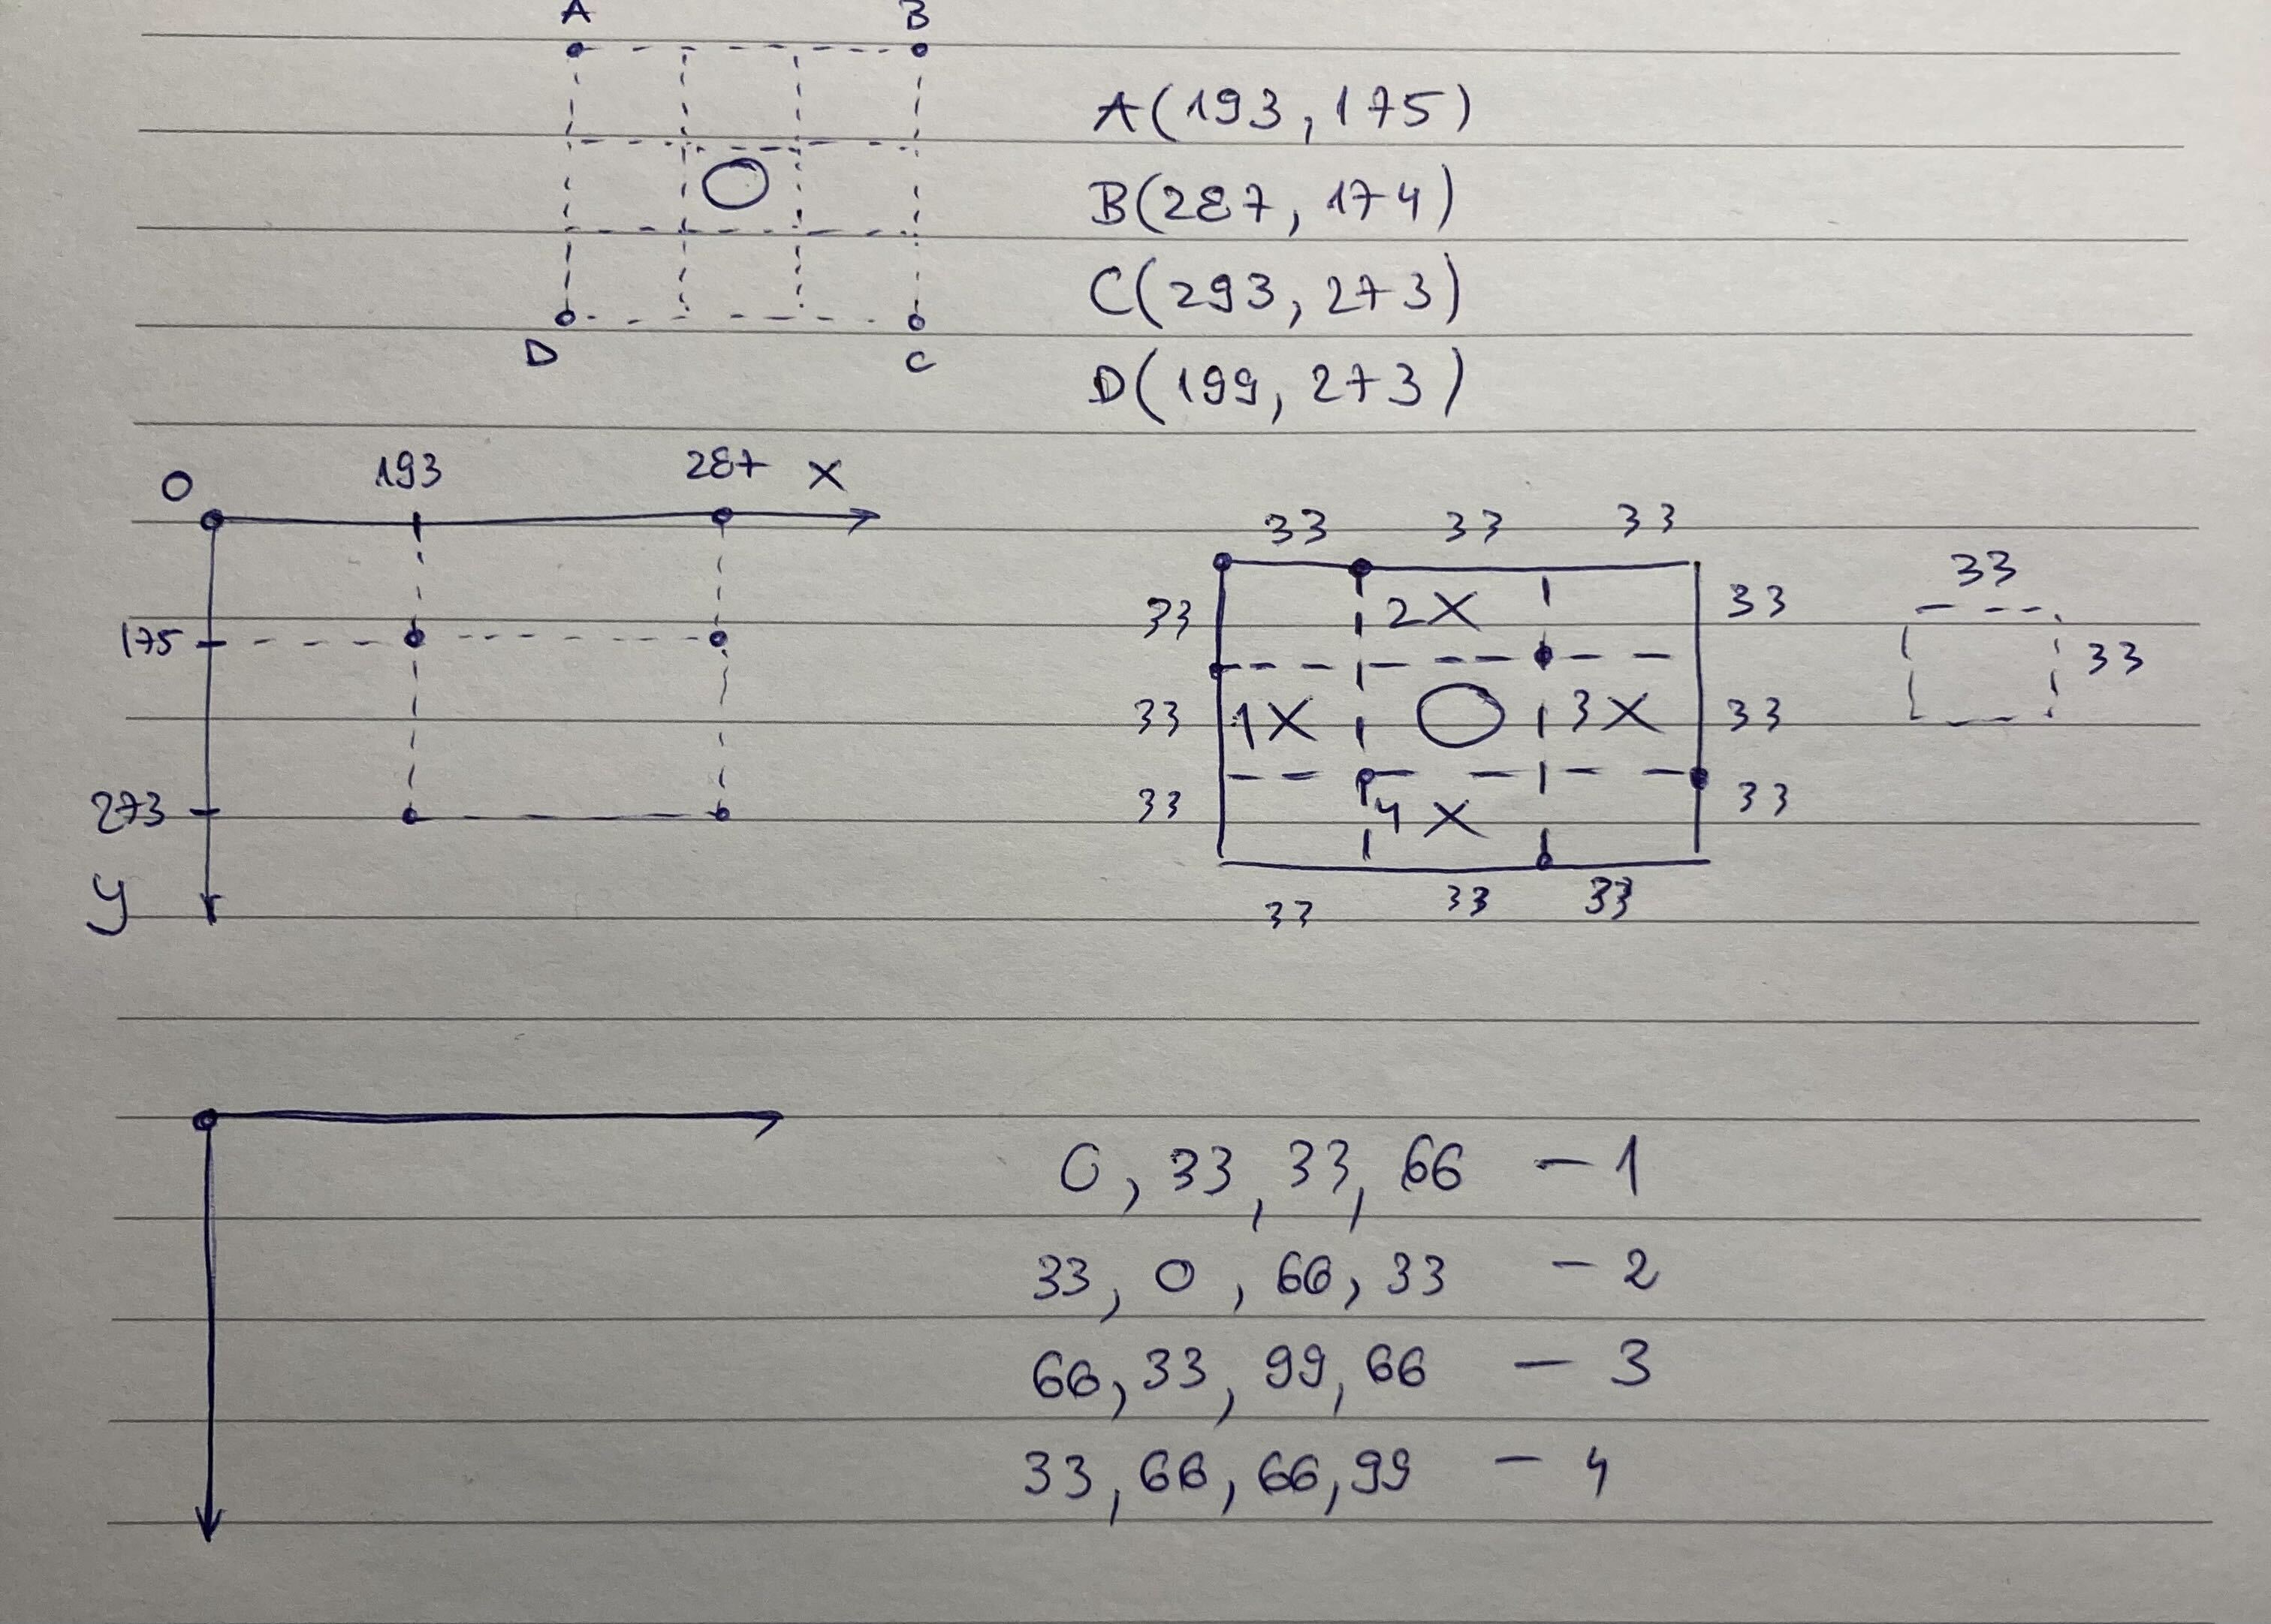 A B
A(193, 175)
B(287, 174)
C(293, 273)
D(199, 273)
D C
O 193 287 X
175
273
y
33 33 33
33 2X 33
33 1X 3X 33
33 4X 33
33 33 33
33
33
0, 33, 33, 66 - 1
33, 0, 66, 33 - 2
66, 33, 99, 66 - 3
33, 66, 66, 99 - 4